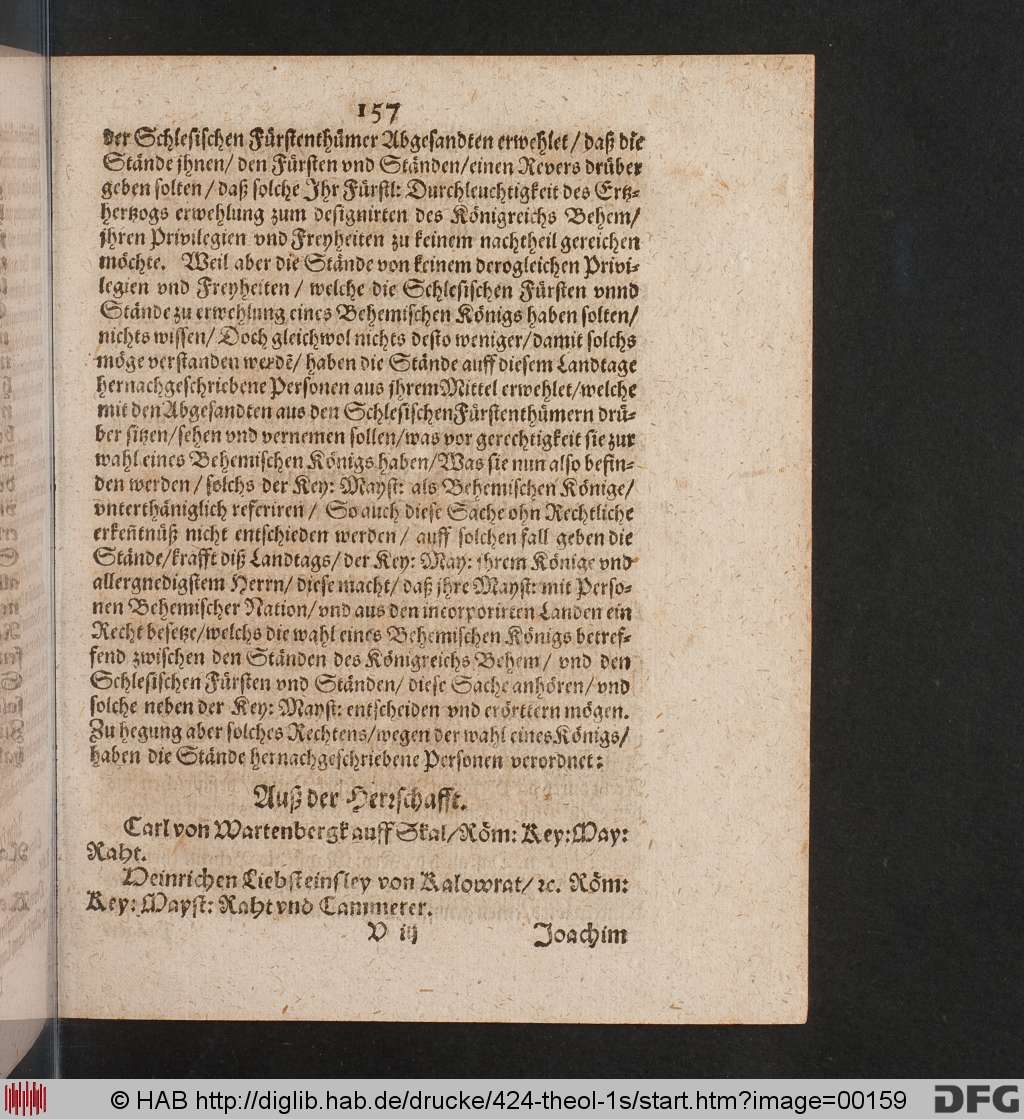 157
der Schlesischen Fürstenthümer Abgesandten erwehlet / daß die
Stände jhnen / den Fürsten vnd Ständen / einen Revers drüber
geben solten / daß solche Ihr Fürstl: Durchleuchtigkeit des Ertz-
hertzogs erwehlung zum designirten des Königreichs Behem /
jhren Privilegien vnd Freyheiten zu keinem nachtheil gereichen
möchte. Weil aber die Stände von keinem derogleichen Privi-
legien vnd Freyheiten / welche die Schlesischen Fürsten vnnd
Stände zu erwehlung eines Behemischen Königs haben solten /
nichts wissen / Doch gleichwol nichts desto weniger / damit solchs
möge verstanden werdē / haben die Stände auff diesem Landtage
hernachgeschriebene Personen aus jhrem Mittel erwehlet / welche
mit den Abgesandten aus den Schlesischen Fürstenthümern drü-
ber sitzen / sehen vnd vernemen sollen / was vor gerechtigkeit sie zur
wahl eines Behemischen Königs haben / Was sie nun also befin-
den werden / solchs der Key: Mayst: als Behemischen Könige /
vnterthäniglich referiren / So auch diese Sache ohn Rechtliche
erkeñtnüß nicht entschieden werden / auff solchen fall geben die
Stände / krafft diß Landtags / der Key: May: jhrem Könige vnd
allergnedigstem Herrn / diese macht / daß jhre Mayst: mit Perso-
nen Behemischer Nation / vnd aus den incorporirten Landen ein
Recht besetze / welchs die wahl eines Behemischen Königs betref-
fend zwischen den Ständen des Königreichs Behem / vnd den
Schlesischen Fürsten vnd Ständen / diese Sache anhören / vnd
solche neben der Key: Mayst: entscheiden vnd erörttern mögen.
Zu hegung aber solches Rechtens / wegen der wahl eines Königs /
haben die Stände hernachgeschriebene Personen verordnet:
Auß der Herrschafft.
Carl von Wartenbergk auff Skal / Röm: Key: May:
Raht.
Heinrichen Liebsteinsley von Kalowrat / ꝛc. Röm:
Key: Mayst: Raht vnd Cammerer.
V iij Joachim
© HAB http://diglib.hab.de/drucke/424-theol-1s/start.htm?image=00159
DFG